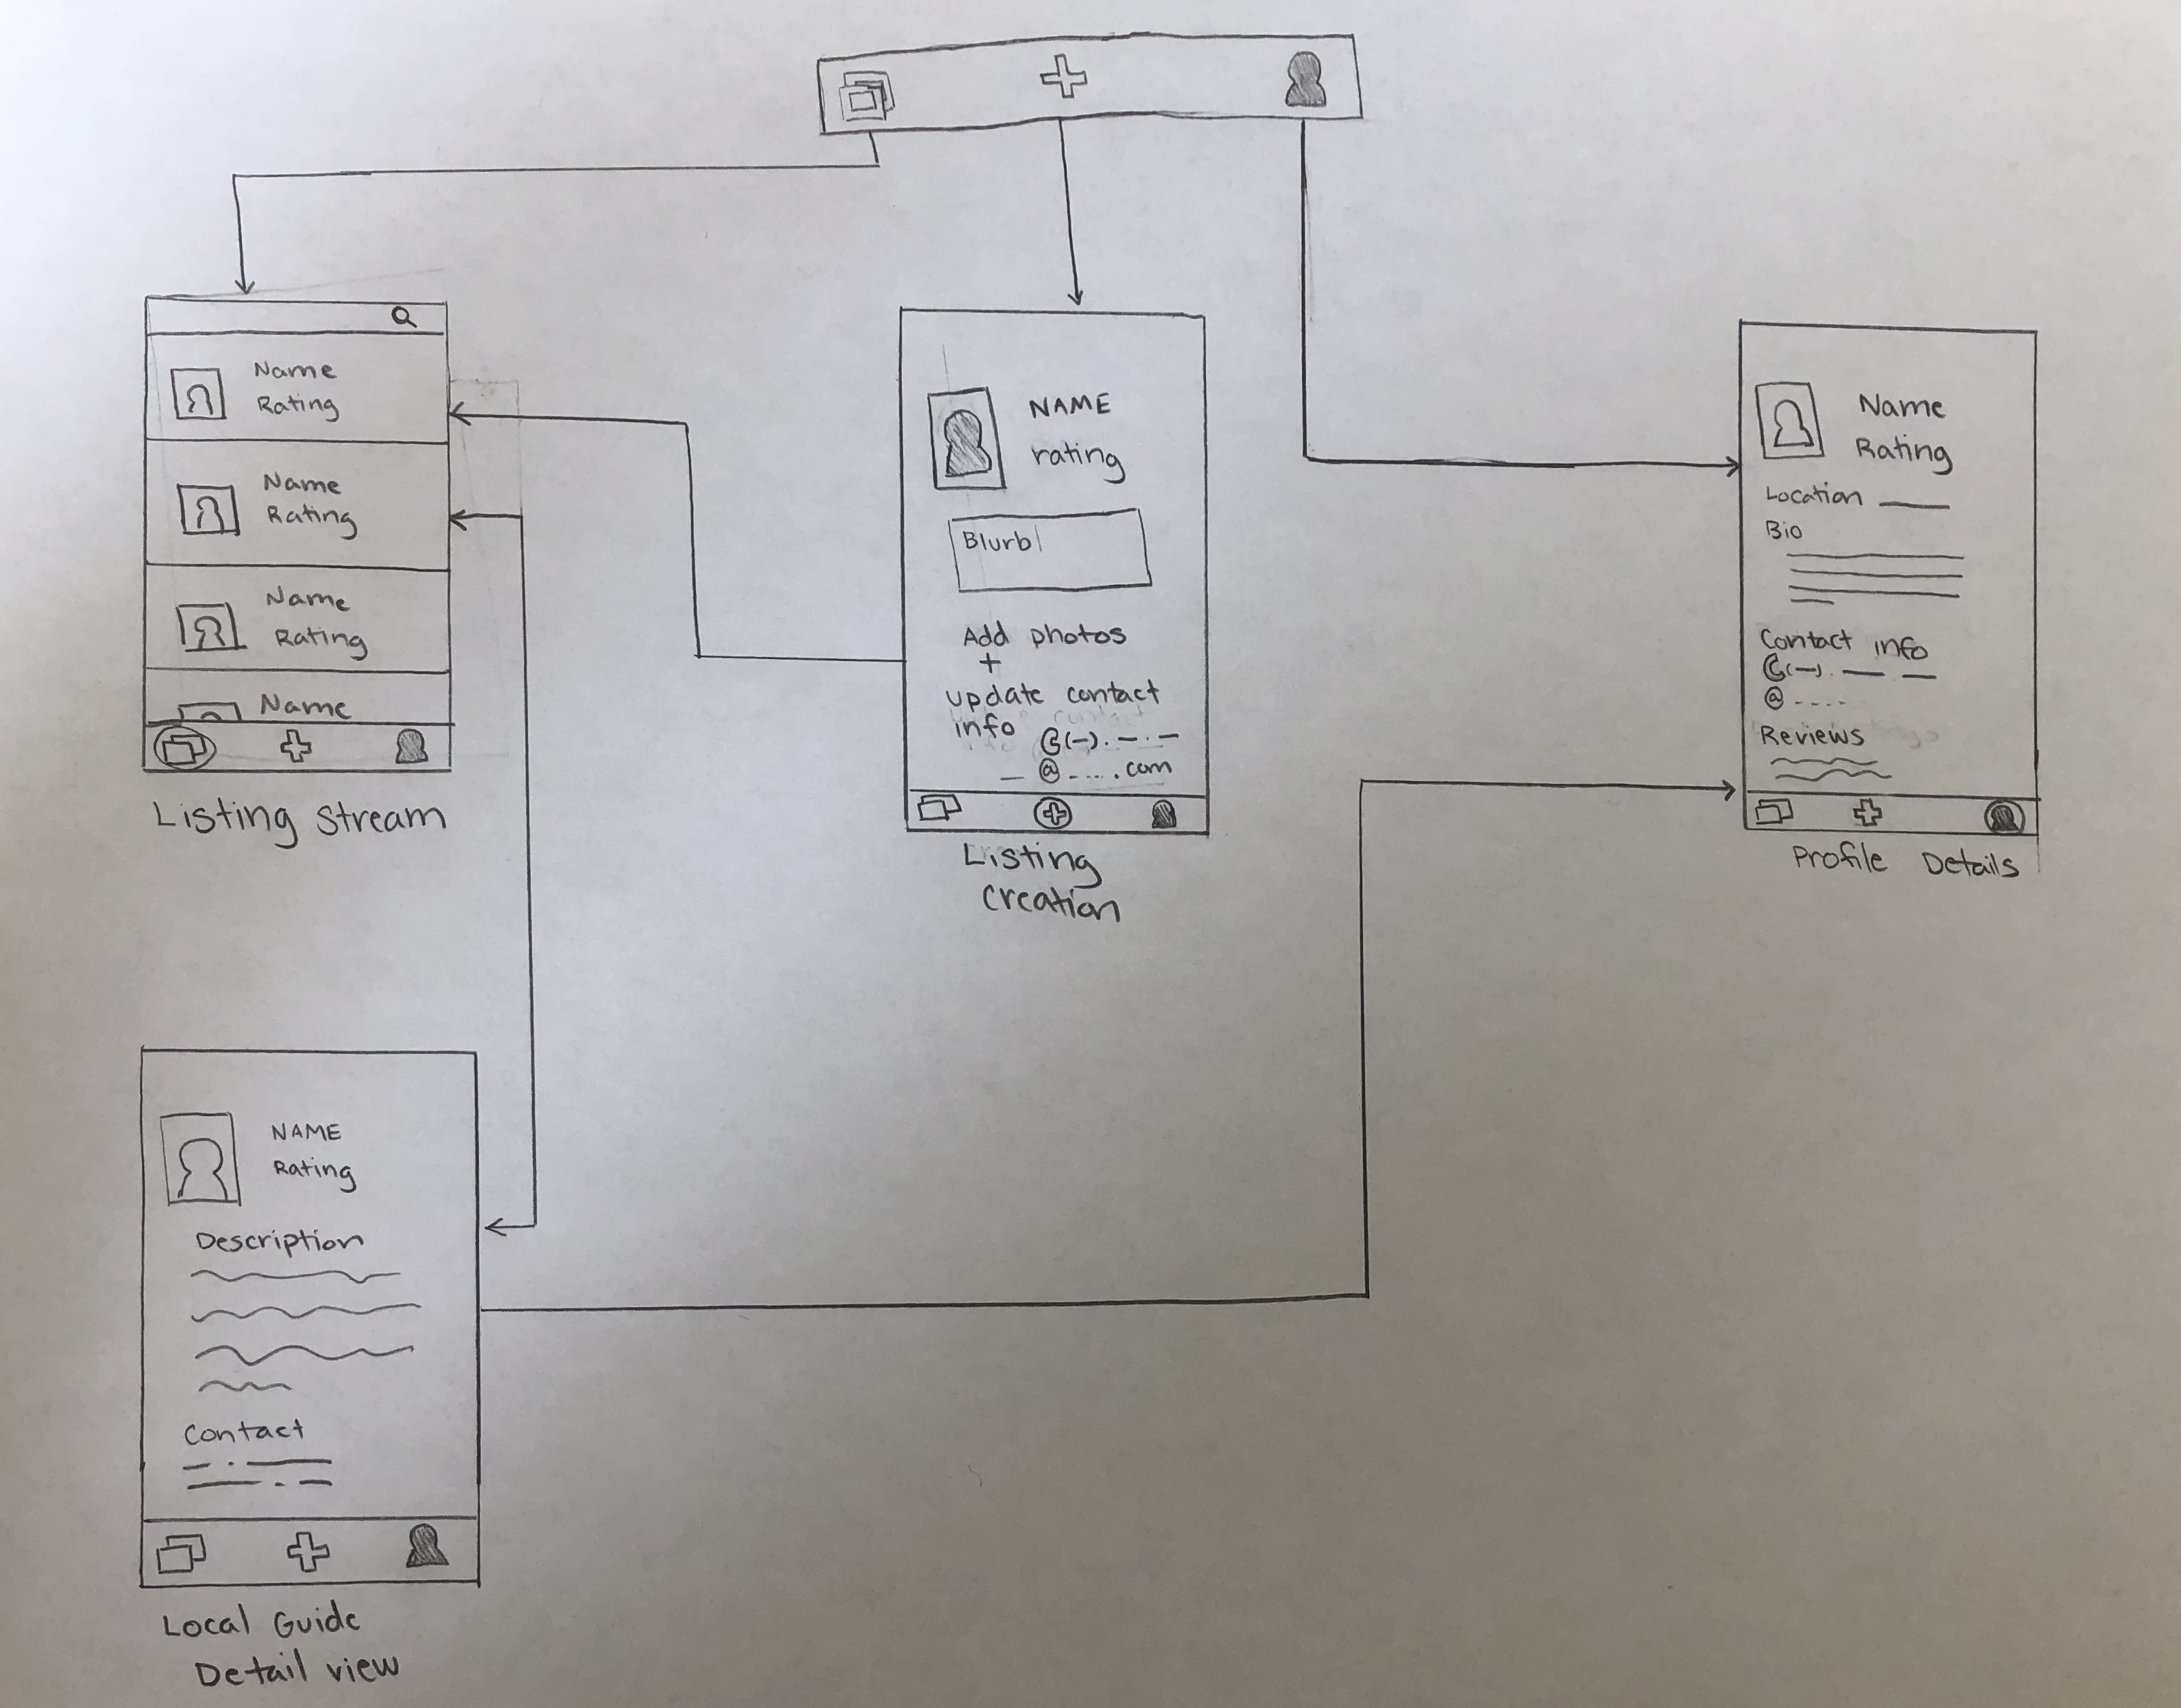 Name
Rating
Name
Rating
Name
Rating
Name
Listing Stream
NAME
rating
Blurb
Add photos
+
update contact
info (-). - . -
_ @ - - - . com
Listing
Creation
Name
Rating
Location
Bio
Contact info
(-). — —
@ - - - -
Reviews
Profile Details
NAME
Rating
Description
Contact
Local Guide
Detail view